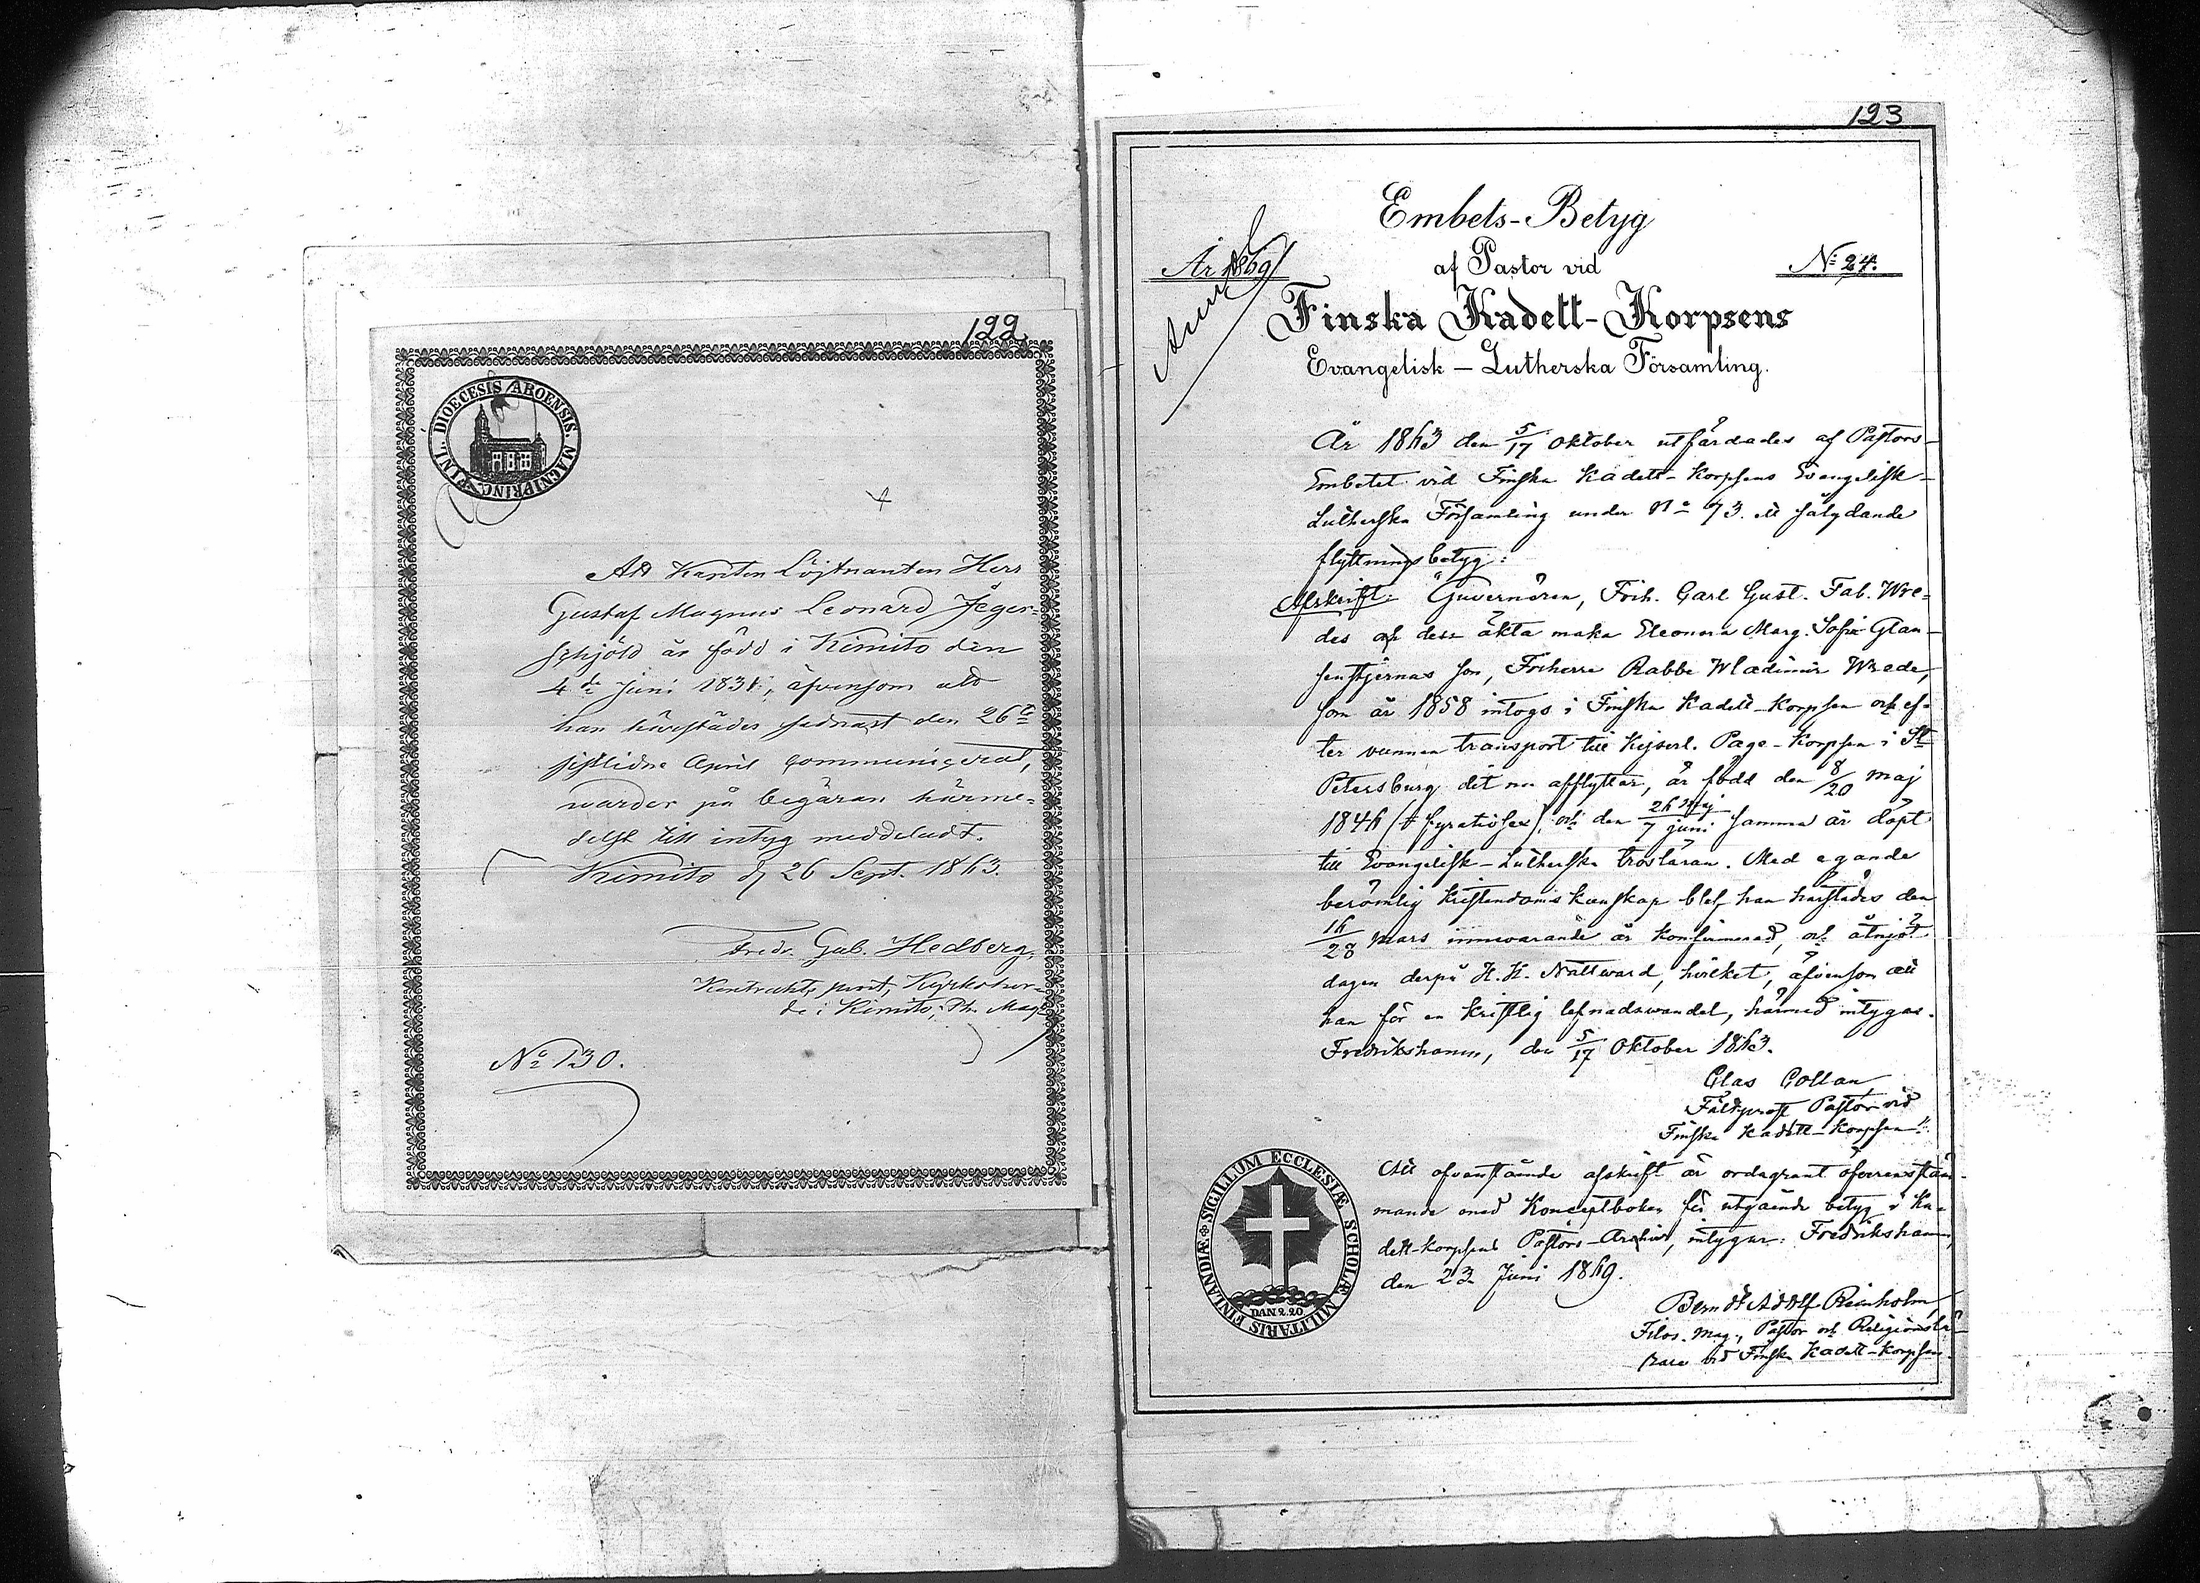 122.
DIOECESIS ABOENSIS. MAGNIPRINC. FINL.
Att Kapten Löjtnanten Herr
Gustaf Magnus Leonard Jäger-
schjöld är född i Kimito den
4de Juni 1831, äfvensom att
han härstädes sednast den 26te
sistlidne April communicerat,
warder på begäran härme-
delst till intyg meddeladt.
Kimito d. 26 Sept. 1863.
Fredr. Gab. Hedberg.
Kontrakts prost, Kyrkoher-
de i Kimito, Ph. Mag.
No 130.
123
Embets-Betyg
af Pastor vid
År 1869
No 24.
Finska Kadett-Korpsens
Evangelisk – Lutherska Församling.
År 1863 den 5/17 Oktober utfärdades af Pastors-
Embetet vid Finska Kadett-Korpsens Evangelisk-
Lutherska Församling under No 73. ett sålydande
flyttningsbetyg:
Afskrift: "Guvernören, Frih. Carl Gust. Fab. Wre-
des och dess äkta maka Eleonora Marg. Sofia Glan-
senstjernas son, Friherre Rabbe Wladimir Wrede,
som år 1858 intogs i Finska Kadett-Korpsen och ef-
ter vunnen transport till Kejserl. Page-Korpsen i St
Petersburg dit nu afflyttar, är född den 8/20 Maj
1846 och den 26 Maj/7 Juni samma år döpt
till Evangelisk-Lutherska trosläran. Med egande
berömlig Kristendoms kunskap blef han härstädes den
16/28 Mars innewarande år konfirmerad, och åtnjöt
dagen derpå H. H. Nattward, hvilket, äfvensom att
han för en kristlig lefnadswandel, härmed intygas.
Fredrikshamn, den 5/17 Oktober 1863.
Clas Collan
Fältprost, Pastor vid
Finska Kadett-Korpsen".
Att ofvanstående afskrift är ordagrant öfverensstäm-
mande med Konceptboken för utgående betyg i Ka-
dett-Korpsens Pastors-Archiv, intygar: Fredrikshamn,
den 23 Juni 1869.
Berndt Adolf Reinholm,
Filos. Mag., Pastor och Religionslä-
rare vid Finska Kadett-Korpsen.
SIGILLUM ECCLESIÆ SCHOLÆ MILITARIS FINLANDIÆ
DAN 2.20